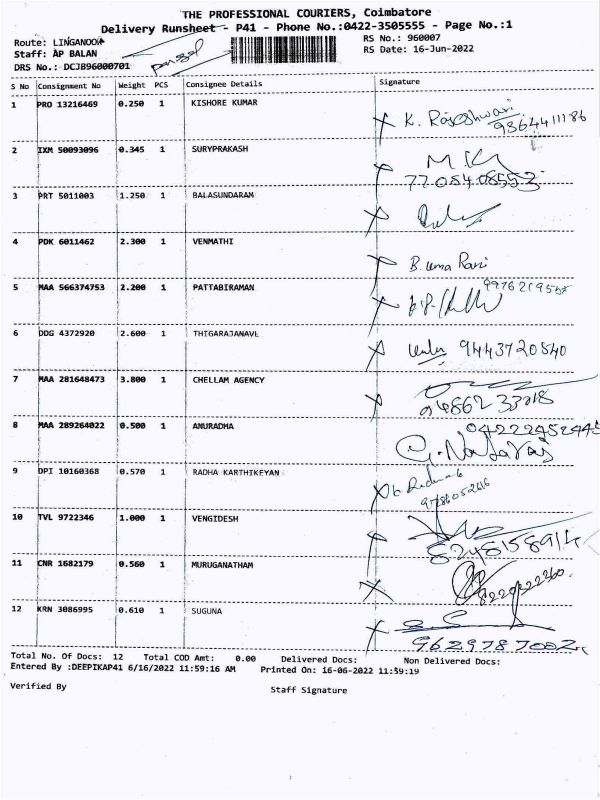 THE PROFESSIONAL COURIERS, Coimbatore
Delivery Runsheet - P41 - Phone No.:0422-3505555 - Page No.:1
Route: LINGANOOR
RS No.: 960007
Staff: AP BALAN
RS Date: 16-Jun-2022
DRS No.: DCJB96000701
S No Consignment No Weight PCS Consignee Details Signature
1 PRO 13216469 0.250 1 KISHORE KUMAR
K. Rajeshwari
9364411186
2 IXM 50093096 0.345 1 SURYPRAKASH
3 PRT 5011003 1.250 1 BALASUNDARAM
4 PDK 6011462 2.300 1 VENMATHI
B. Uma Rani
5 MAA 566374753 2.200 1 PATTABIRAMAN
6 DDG 4372920 2.600 1 THIGARAJANAVL
9443720540
7 MAA 281648473 3.800 1 CHELLAM AGENCY
8 MAA 289264022 0.500 1 ANURADHA
04222452445
G. Nataraj
9 DPI 10160368 0.570 1 RADHA KARTHIKEYAN
10 TVL 9722346 1.000 1 VENGIDESH
8248158914
11 CNR 1682179 0.560 1 MURUGANATHAM
12 KRN 3086995 0.610 1 SUGUNA
9629787002
Total No. Of Docs: 12 Total COD Amt: 0.00 Delivered Docs: Non Delivered Docs:
Entered By :DEEPIKAP41 6/16/2022 11:59:16 AM Printed On: 16-06-2022 11:59:19
Verified By Staff Signature